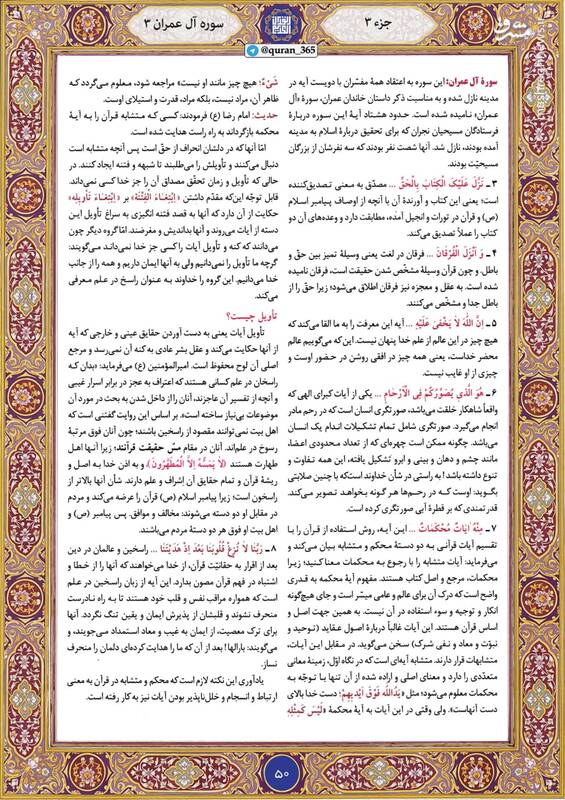 جزء ۳
سوره آل عمران ۳
مشرق
@quran_365
سورهٔ آل عمران: این سوره به اعتقاد همهٔ مفسّران با دویست آیه در
مدینه نازل شده و به مناسبت ذکر داستان خاندان عمران، سورهٔ «آل
عمران» نامیده شده است. حدود هشتاد آیهٔ این سوره دربارهٔ
فرستادگان مسیحیان نجران که برای تحقیق دربارهٔ اسلام به مدینه
آمده بودند، نازل شد. آنها شصت نفر بودند که سه نفرشان از بزرگان
مسیحیّت بودند.
۳ـ نَزَّلَ عَلَیْکَ الْکِتَابَ بِالْحَقِّ ... مصدّق به معنی تصدیق‌کننده
است؛ یعنی این کتاب و آورندهٔ آن با آنچه از اوصاف پیامبر اسلام
(ص) و قرآن در تورات و انجیل آمده، مطابقت دارد و وعده‌های آن دو
کتاب را عملاً تصدیق می‌کند.
۴ـ وَ أَنْزَلَ الْفُرْقَانَ ... فرقان در لغت یعنی وسیلهٔ تمیز بین حقّ و
باطل و چون قرآن وسیلهٔ مشخّص شدن حقیقت است، فرقان نامیده
شده است. به عقل و معجزه نیز فرقان اطلاق می‌شود؛ زیرا حقّ را از
باطل جدا و مشخّص می‌کنند.
۵ـ إِنَّ اللهَ لَا یَخْفَىٰ عَلَیْهِ ... آیه این معرفت را به ما القا می‌کند که
هیچ چیز در این عالم از علم خدا پنهان نیست. این که می‌گوییم عالم
محضر خداست، یعنی همه چیز در افقی روشن در حضور اوست و
چیزی از او غایب نیست.
۶ـ هُوَ الَّذِی یُصَوِّرُکُمْ فِی الْأَرْحَامِ ... یکی از آیات کبرای الهی که
واقعاً شاهکار خلقت می‌باشد، صورتگری انسان است که در رحم مادر
انجام می‌گیرد. صورتگری شامل تمام تشکیلات اندام یک انسان
می‌باشد. چگونه ممکن است چهره‌ای که از تعداد محدودی اعضاء
مانند چشم و دهان و بینی و ابرو تشکیل یافته، این همه تفاوت و
تنوع داشته باشد! به راستی در شأن خداوند است که با چنین صلابتی
بگوید: اوست که در رحم‌ها هر گونه بخواهد تصویر می‌کند.
قدرتمندی که بر قطرهٔ آبی صورتگری کرده است.
۷ـ مِنْهُ آیَاتٌ مُحْکَمَاتٌ ... این آیه، روش استفاده از قرآن را با
تقسیم آیات قرآنی به دو دستهٔ محکم و متشابه بیان می‌کند و
می‌فرماید: آیات متشابه را با رجوع به محکمات معنا کنید؛ زیرا
محکمات، مرجع و اصل کتاب هستند. مفهوم آیهٔ محکمه به قدری
واضح است که درک آن برای عالم و عامی میسّر است و جای هیچ‌گونه
انکار و توجیه و سوء استفاده در آن نیست. به همین جهت اصل و
اساس قرآن هستند. این آیات غالباً دربارهٔ اصول عقاید (توحید و
نبوّت و معاد و نفی شرک) سخن می‌گوید. در مقابل این آیات،
متشابهات قرار دارند. متشابه آیه‌ای است که در نگاه اوّل، زمینهٔ معانی
متعدّدی را دارد و معنای اصلی و اراده شده از آن تنها با توجّه به
محکمات معلوم می‌شود؛ مثل «یَدُاللهِ فَوْقَ أَیْدِیهِمْ؛ دست خدا بالای
دست آنهاست». ولی وقتی در این آیات به آیهٔ محکمهٔ «لَیْسَ کَمِثْلِهِ
شَیْءٌ؛ هیچ چیز مانند او نیست» مراجعه شود، معلوم می‌گردد که
ظاهر آن، مراد نیست، بلکه مراد، قدرت و استیلای اوست.
حدیث: امام رضا (ع) فرمودند: کسی که متشابه قرآن را به آیهٔ
محکمه بازگرداند به راه راست هدایت شده است.
امّا آنها که در دلشان انحراف از حقّ است پس آنچه متشابه است
دنبال می‌کنند و تأویلش را می‌طلبند تا شبهه و فتنه ایجاد کنند. در
حالی که تأویل و زمان تحقّق مصداق آن را جز خدا کسی نمی‌داند.
قابل توجّه این‌که مقدّم داشتن «ابْتِغَاءَ الْفِتْنَةِ» بر «ابْتِغَاءَ تَأْوِیلِهِ»
حکایت از آن دارد که آنها به قصد فتنه انگیزی به سراغ تأویل این
دسته از آیات می‌روند و آنها بداندیش و مغرضند. امّا گروه دیگر چون
می‌دانند که کنه و تأویل آیات را کسی جز خدا نمی‌داند می‌گویند:
گرچه ما تأویل را نمی‌دانیم ولی به آنها ایمان داریم و همه را از جانب
خدا می‌دانیم. این گروه را خداوند به عنوان راسخ در علم معرفی
می‌کند.
تأویل چیست؟
تأویل آیات یعنی به دست آوردن حقایق عینی و خارجی که آیه
از آنها حکایت می‌کند و عقل بشر عادی به کنه آن نمی‌رسد و مرجع
اصلی آن لوح محفوظ است. امیرالمؤمنین (ع) می‌فرماید: «بدان که
راسخان در علم کسانی هستند که اعتراف به عجز در برابر اسرار غیبی
و آنچه از تفسیر آن عاجزند، آنان را از داخل شدن به بحث در مورد آن
موضوعات بی‌نیاز ساخته است». بر اساس این روایت گفتنی است که
اهل بیت نمی‌توانند مقصود از راسخین باشند؛ چون آنان فوق مرتبهٔ
رسوخ در علم‌اند. آنان در مقام مسّ حقیقت قرآنند؛ زیرا آنها اهل
طهارت هستند (لَا یَمَسُّهُ إِلَّا الْمُطَهَّرُونَ)، و به اذن خدا به اصل و
ریشهٔ قرآن و تمام حقایق آن اِشراف و علم دارند. شأن آنها بالاتر از
راسخون است؛ زیرا پیامبر اسلام (ص) قرآن را عرضه می‌کند و مردم
در مقابل او دو دسته می‌شوند: مخالف و موافق. پس پیامبر (ص) و
اهل بیت او فوق هر دو دستهٔ مردم می‌باشند.
۸ـ رَبَّنَا لَا تُزِغْ قُلُوبَنَا بَعْدَ إِذْ هَدَیْتَنَا ... راسخین و عالمان در دین
بعد از اقرار به حقانیّت قرآن، از خدا می‌خواهند که آنها را از خطا و
اشتباه در فهم قرآن مصون بدارد. این آیه از زبان راسخین در علم
است که همواره مراقب نفس و قلب خود هستند تا به راه نادرست
منحرف نشوند و قلبشان از پذیرش ایمان و یقین تنگ نگردد. آنها
برای ترک معصیت، از ایمان به غیب و معاد استمداد می‌جویند،
می‌گویند: بارالها! بعد از آن که ما را هدایت کرده‌ای دلمان را منحرف
نساز.
یادآوری این نکته لازم است که محکم و متشابه در قرآن به معنی
ارتباط و انسجام و خلل‌ناپذیر بودن آیات نیز به کار رفته است.
۵۰